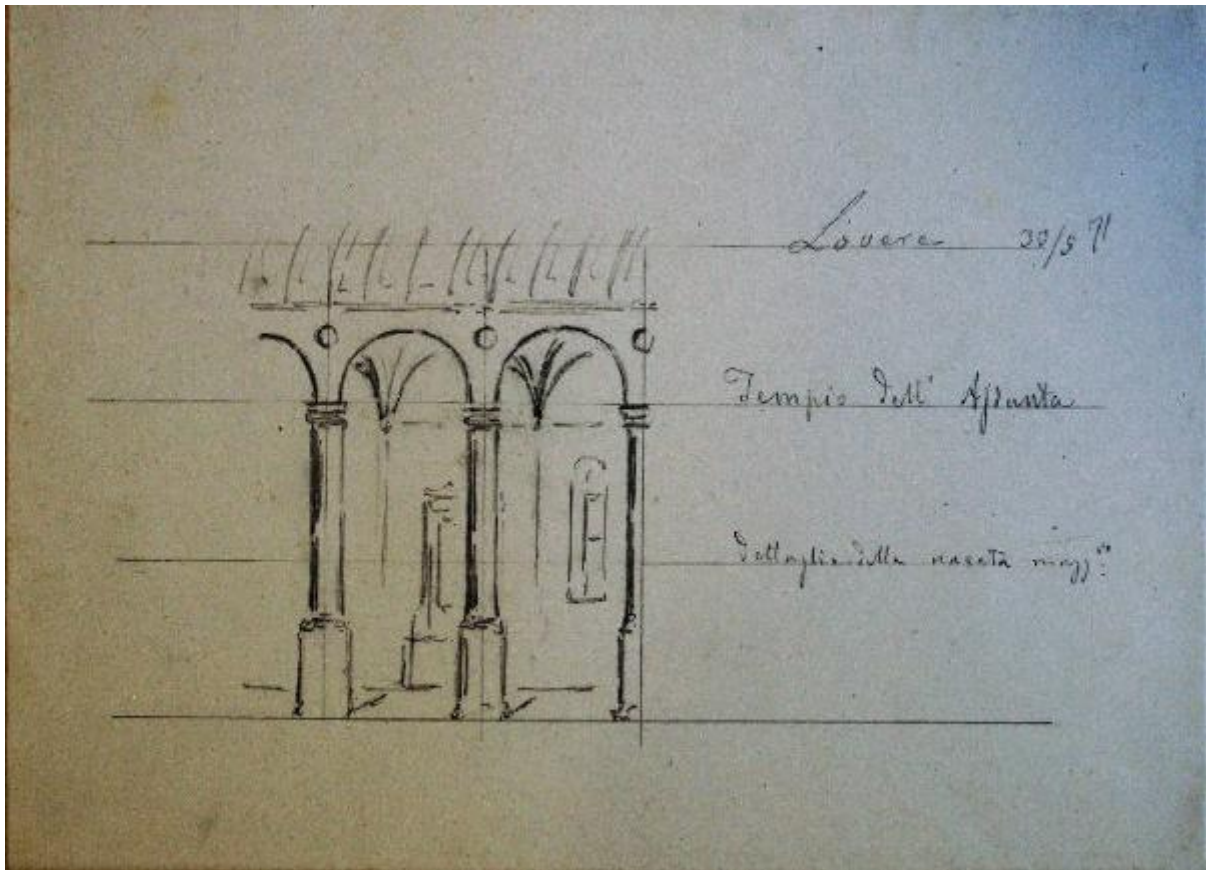 Lovere 30/5 71
Tempio dell' Assunta
dettaglio della navata magg.re